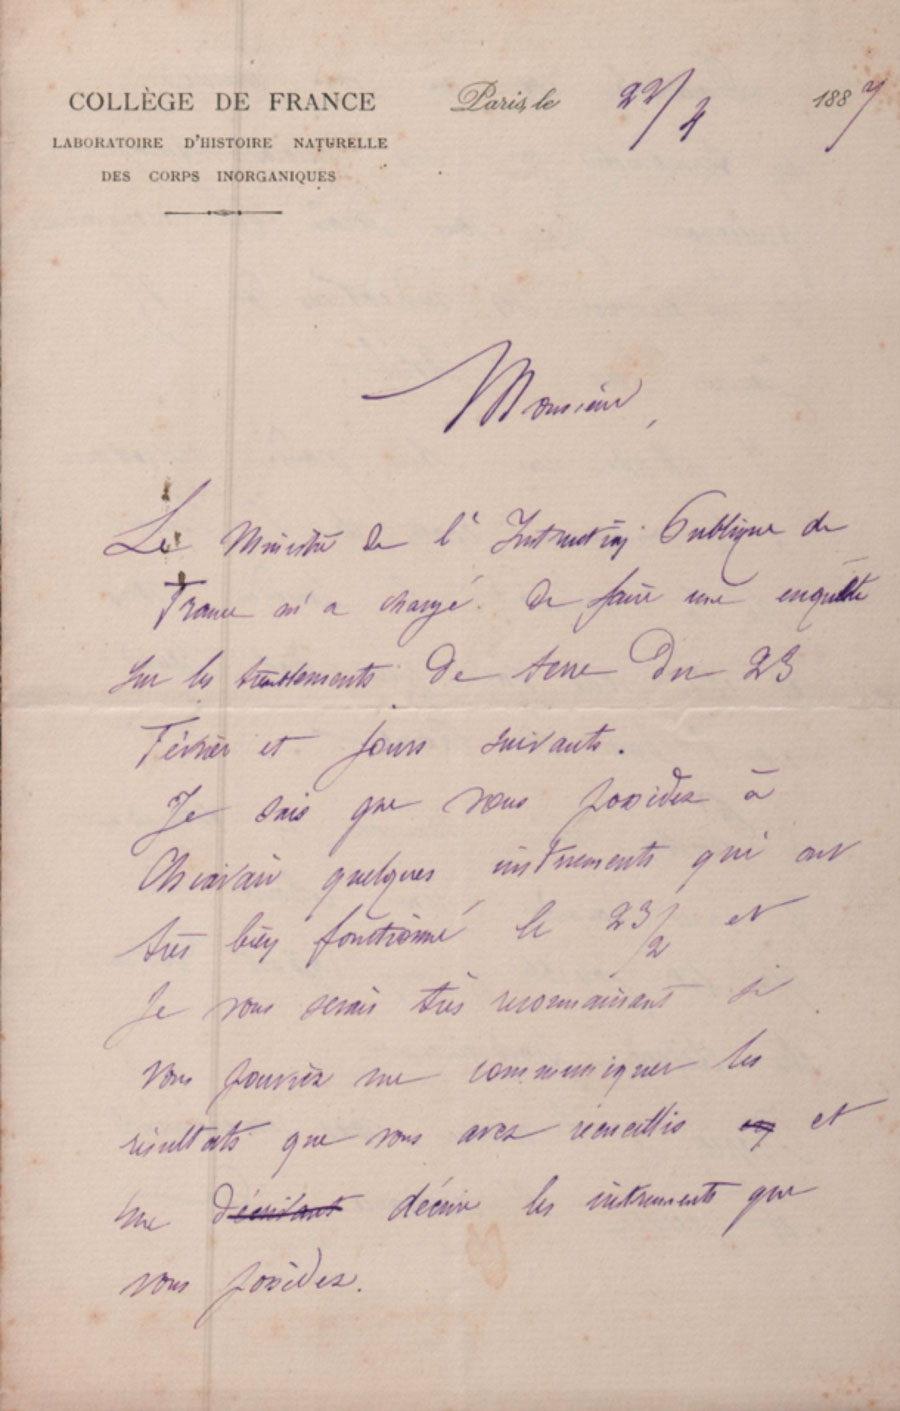 COLLÈGE DE FRANCE
LABORATOIRE D'HISTOIRE NATURELLE
DES CORPS INORGANIQUES
Paris, le 22/4 1887
Monsieur,
Le Ministre de l'Instruction Publique de
France m'a chargé de faire une enquête
sur les tremblements de terre du 23
Février et jours suivants.
Je sais que vous possédez à
quelques instruments qui ont
très bien fonctionné le 23/2 et
Je vous serais très reconnaissant si
vous pouviez me communiquer les
résultats que vous avez recueillis et
me décrivant décrire les instruments que
vous possédez.